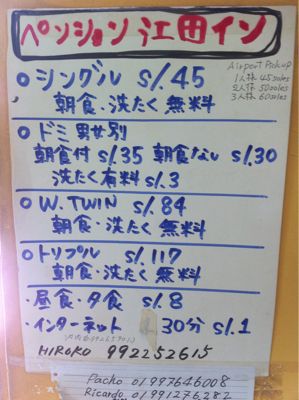 ペンション江田イン
Airport Pickup
1人様 45soles
2人様 50soles
3人様 60soles
○シングル S/.45
朝食・洗たく 無料
○ドミ 男女別
朝食付 S/.35 朝食なし S/.30
洗たく有料 S/.3
○W.TWIN S/.84
朝食・洗たく 無料
○トリプル S/.117
朝食・洗たく 無料
・昼食・夕食 S/.8
・インターネット 30分 S/.1
HIROKO 992252615
Pacho 01 997646008
Ricardo 01 991276282